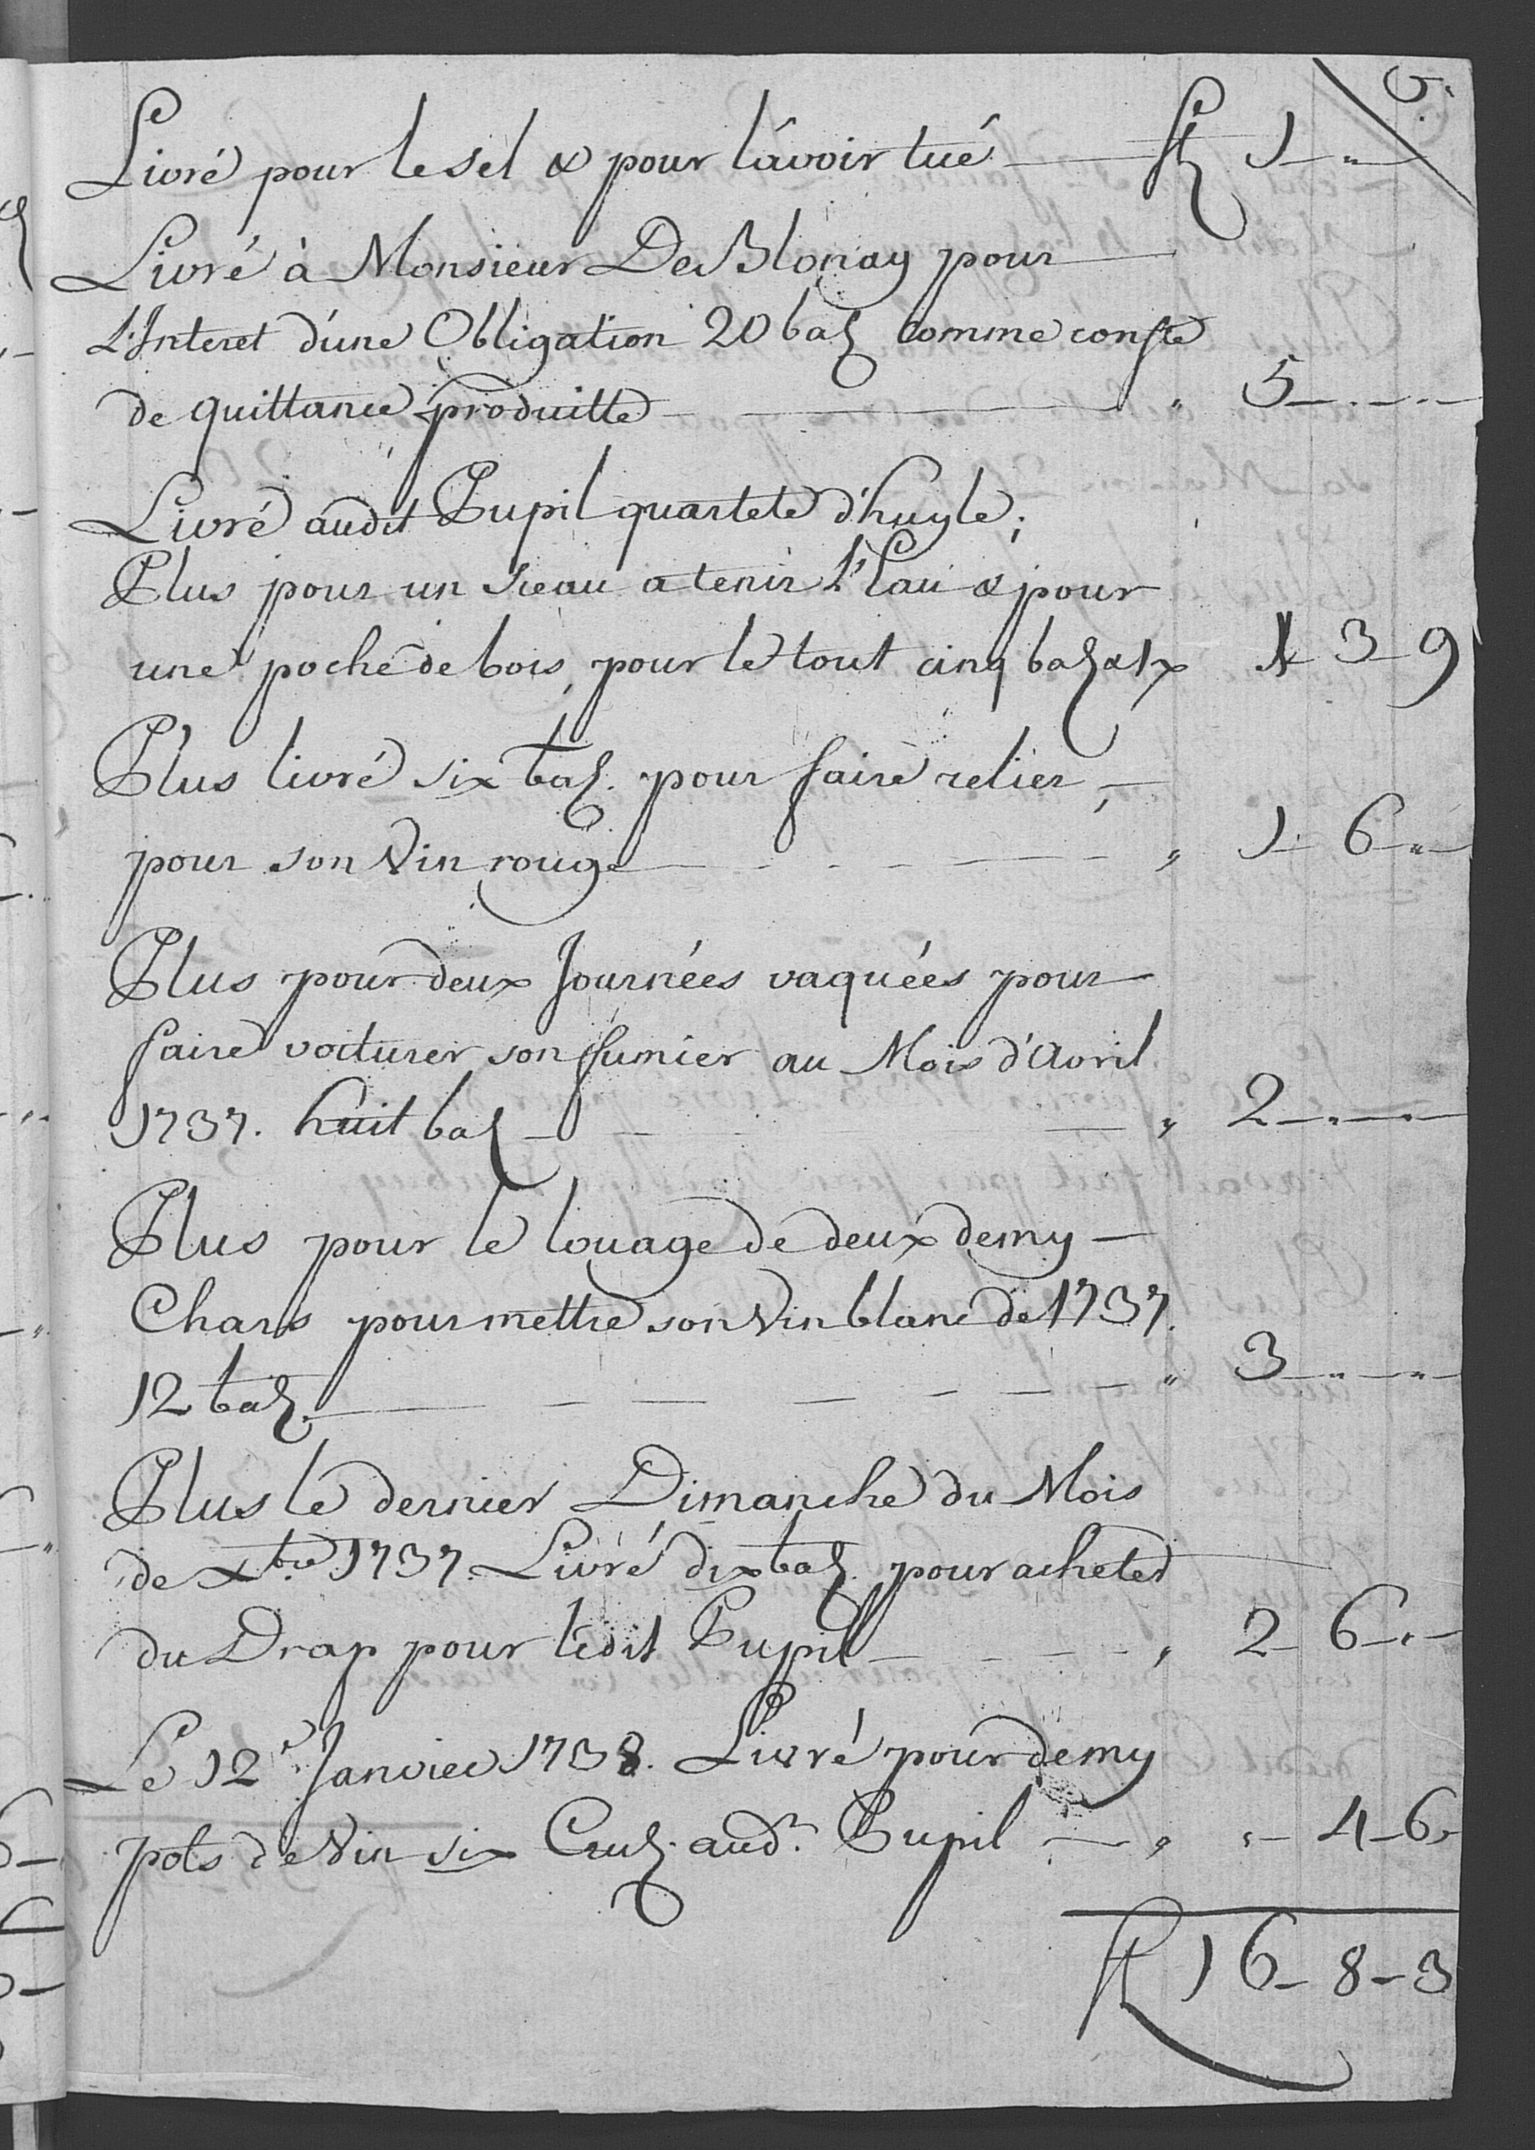 5.
Livré pour le sel & pour lávoir tué — ff 1 - "
Livré à Monsieur De Blonay pour
L'Interet d'une Obligation 20 baz comme conste
de quittance produitte — " 5 - " - "
Livré audit Pupil quartete d'huyle;
Plus pour un seau a tenir l'Eau & pour
une poche de bois, pour le tout cinq baz & 1x 1 - 3 - 9
Plus livré six baz. pour faire relier,
pour son Vin rouge — " 1 - 6 - "
Plus pour deux Journées vaquées pour
faire voiturer son fumier au Mois d'Avril
1737. huit baz — " 2 - " - "
Plus pour le louage de deux demy
Chars pour mettre son Vin blanc de 1737.
12 baz. — " 3 - " - "
Plus le dernier Dimanche du Mois
de Xbre 1737. Livré dix baz. pour acheter
du Drap pour ledit Pupil — " 2 - 6 - "
Le 12e Janvier 1738. Livré pour demy
pots de Vin six Cruz. audt. Pupil — " " - 4 - 6
ff 16 - 8 - 3